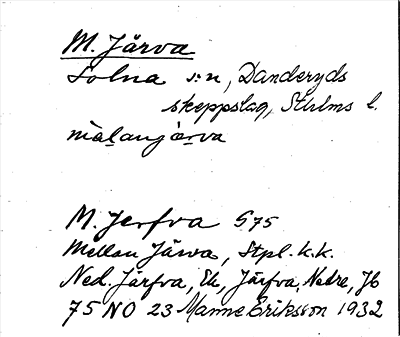 M. Järva
Solna s:n, Danderyds
skeppslag, Sthlms l.
mälanjärva
M. Jerfva S75
Mellan Järva, Stpl. k.k.
Ned. Järfva, Ek, Järfva, Nedre, Jb
75 NO 23 Manne Eriksson 1932